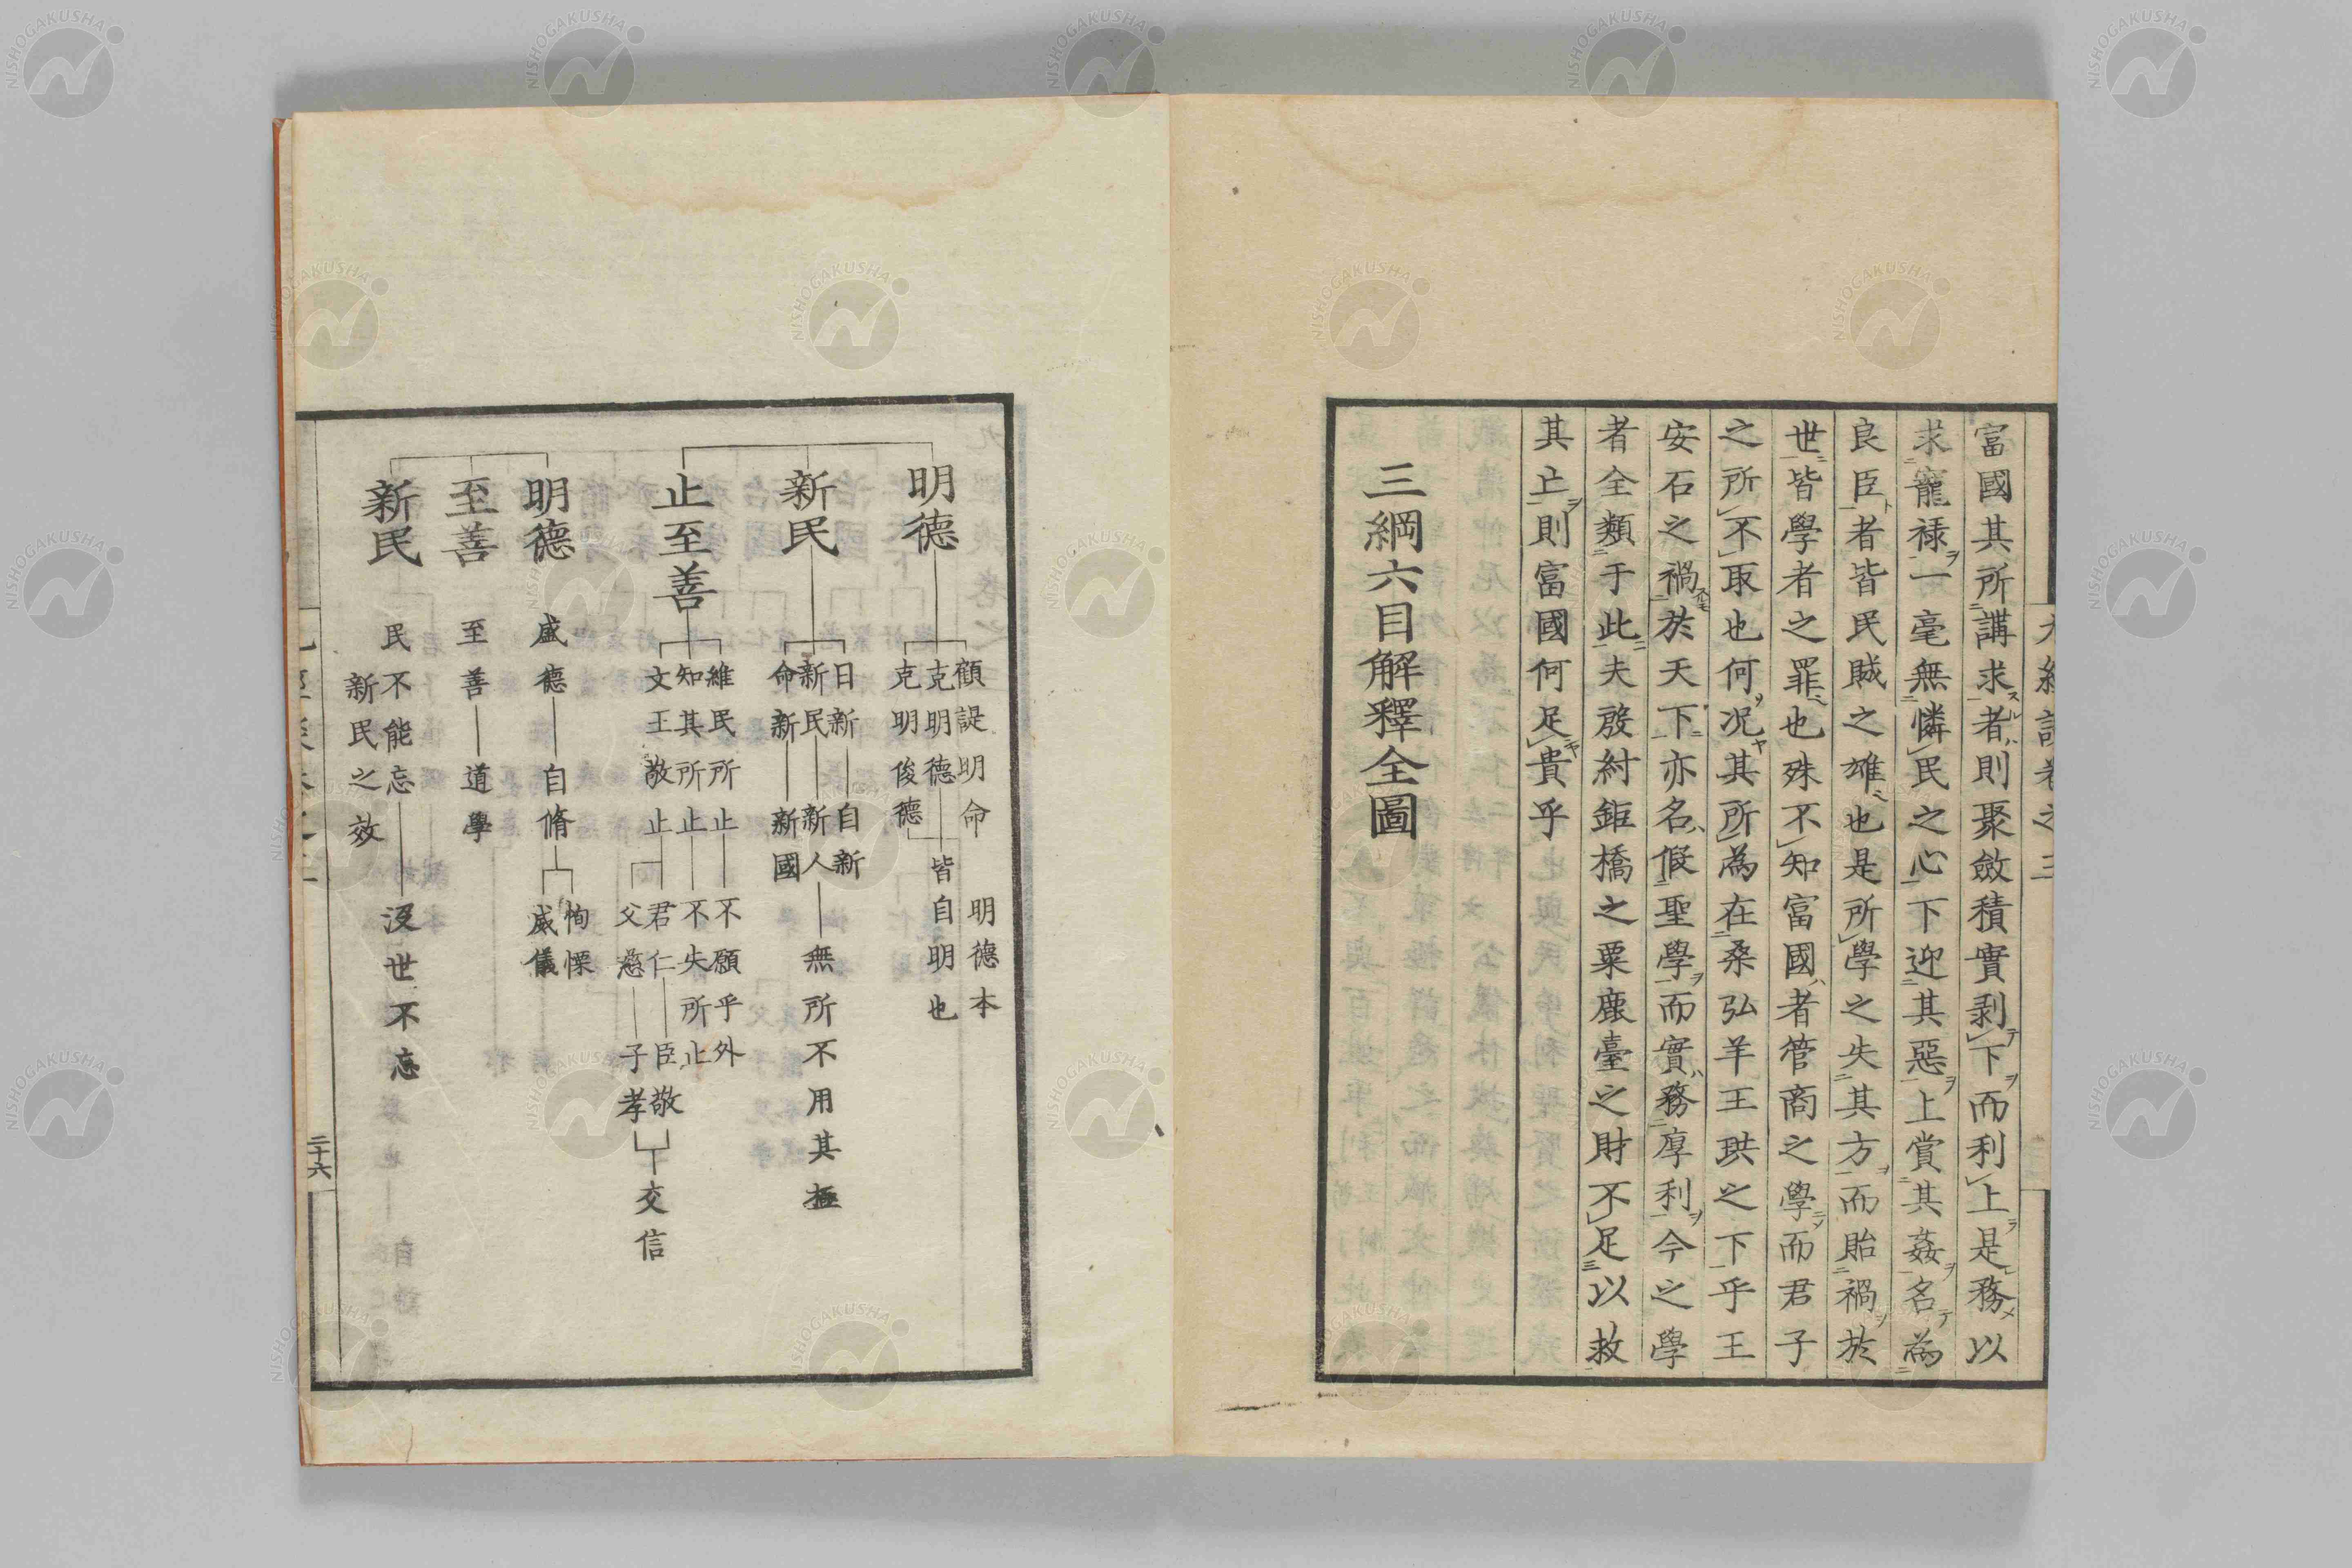 富國其所講求者則聚斂積實剥下而利上是務以
求寵禄一毫無憐民之心下迎其惡上賞其姦名為
良臣者皆民賊之雄也是所學之失其方而貽禍於
世皆學者之罪也殊不知富國者管商之學而君子
之所不取也何况其所為在桑弘羊王珙之下乎王
安石之禍於天下亦名假聖學而實務厚利今之學
者全類于此夫殷紂鉅橋之粟鹿臺之財不足以救
其亡則富國何足貴乎
三綱六目解釋全圖
明德
顧諟明命
克明德
克明俊德
皆自明也
明德本
新民
日新
自新
新民
新人
命新
新國
無所不用其極
止至善
維民所止
不願乎外
知其所止
不失所止
文王敬止
君仁
臣敬
父慈
子孝
交信
明德
盛德
自脩
恂慄
威儀
至善
至善
道學
新民
民不能忘
沒世不忘
新民之效
二十六
NISHOGAKUSHA